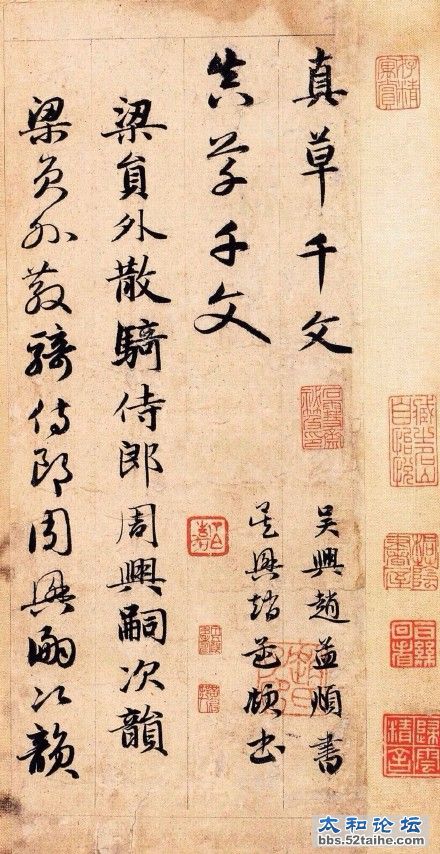 真草千文
吴興趙孟頫書
真草千文
吴興趙孟頫書
梁員外散騎侍郎周興嗣次韻
梁員外散騎侍郎周興嗣次韻
太和论坛
bbs.52taihe.com